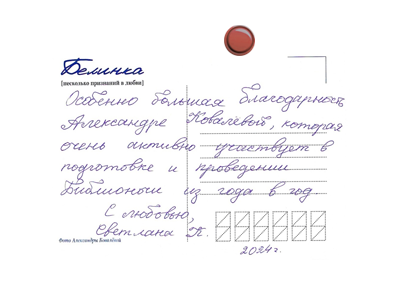 Белинка
[несколько признаний в любви]
Особенно большая благодарность
Александре Ковалевой, которая
очень активно участвует в
подготовке и проведении
Библионочи из года в год
С любовью,
Светлана П.
2024г.
Фото Александры Ковалёвой